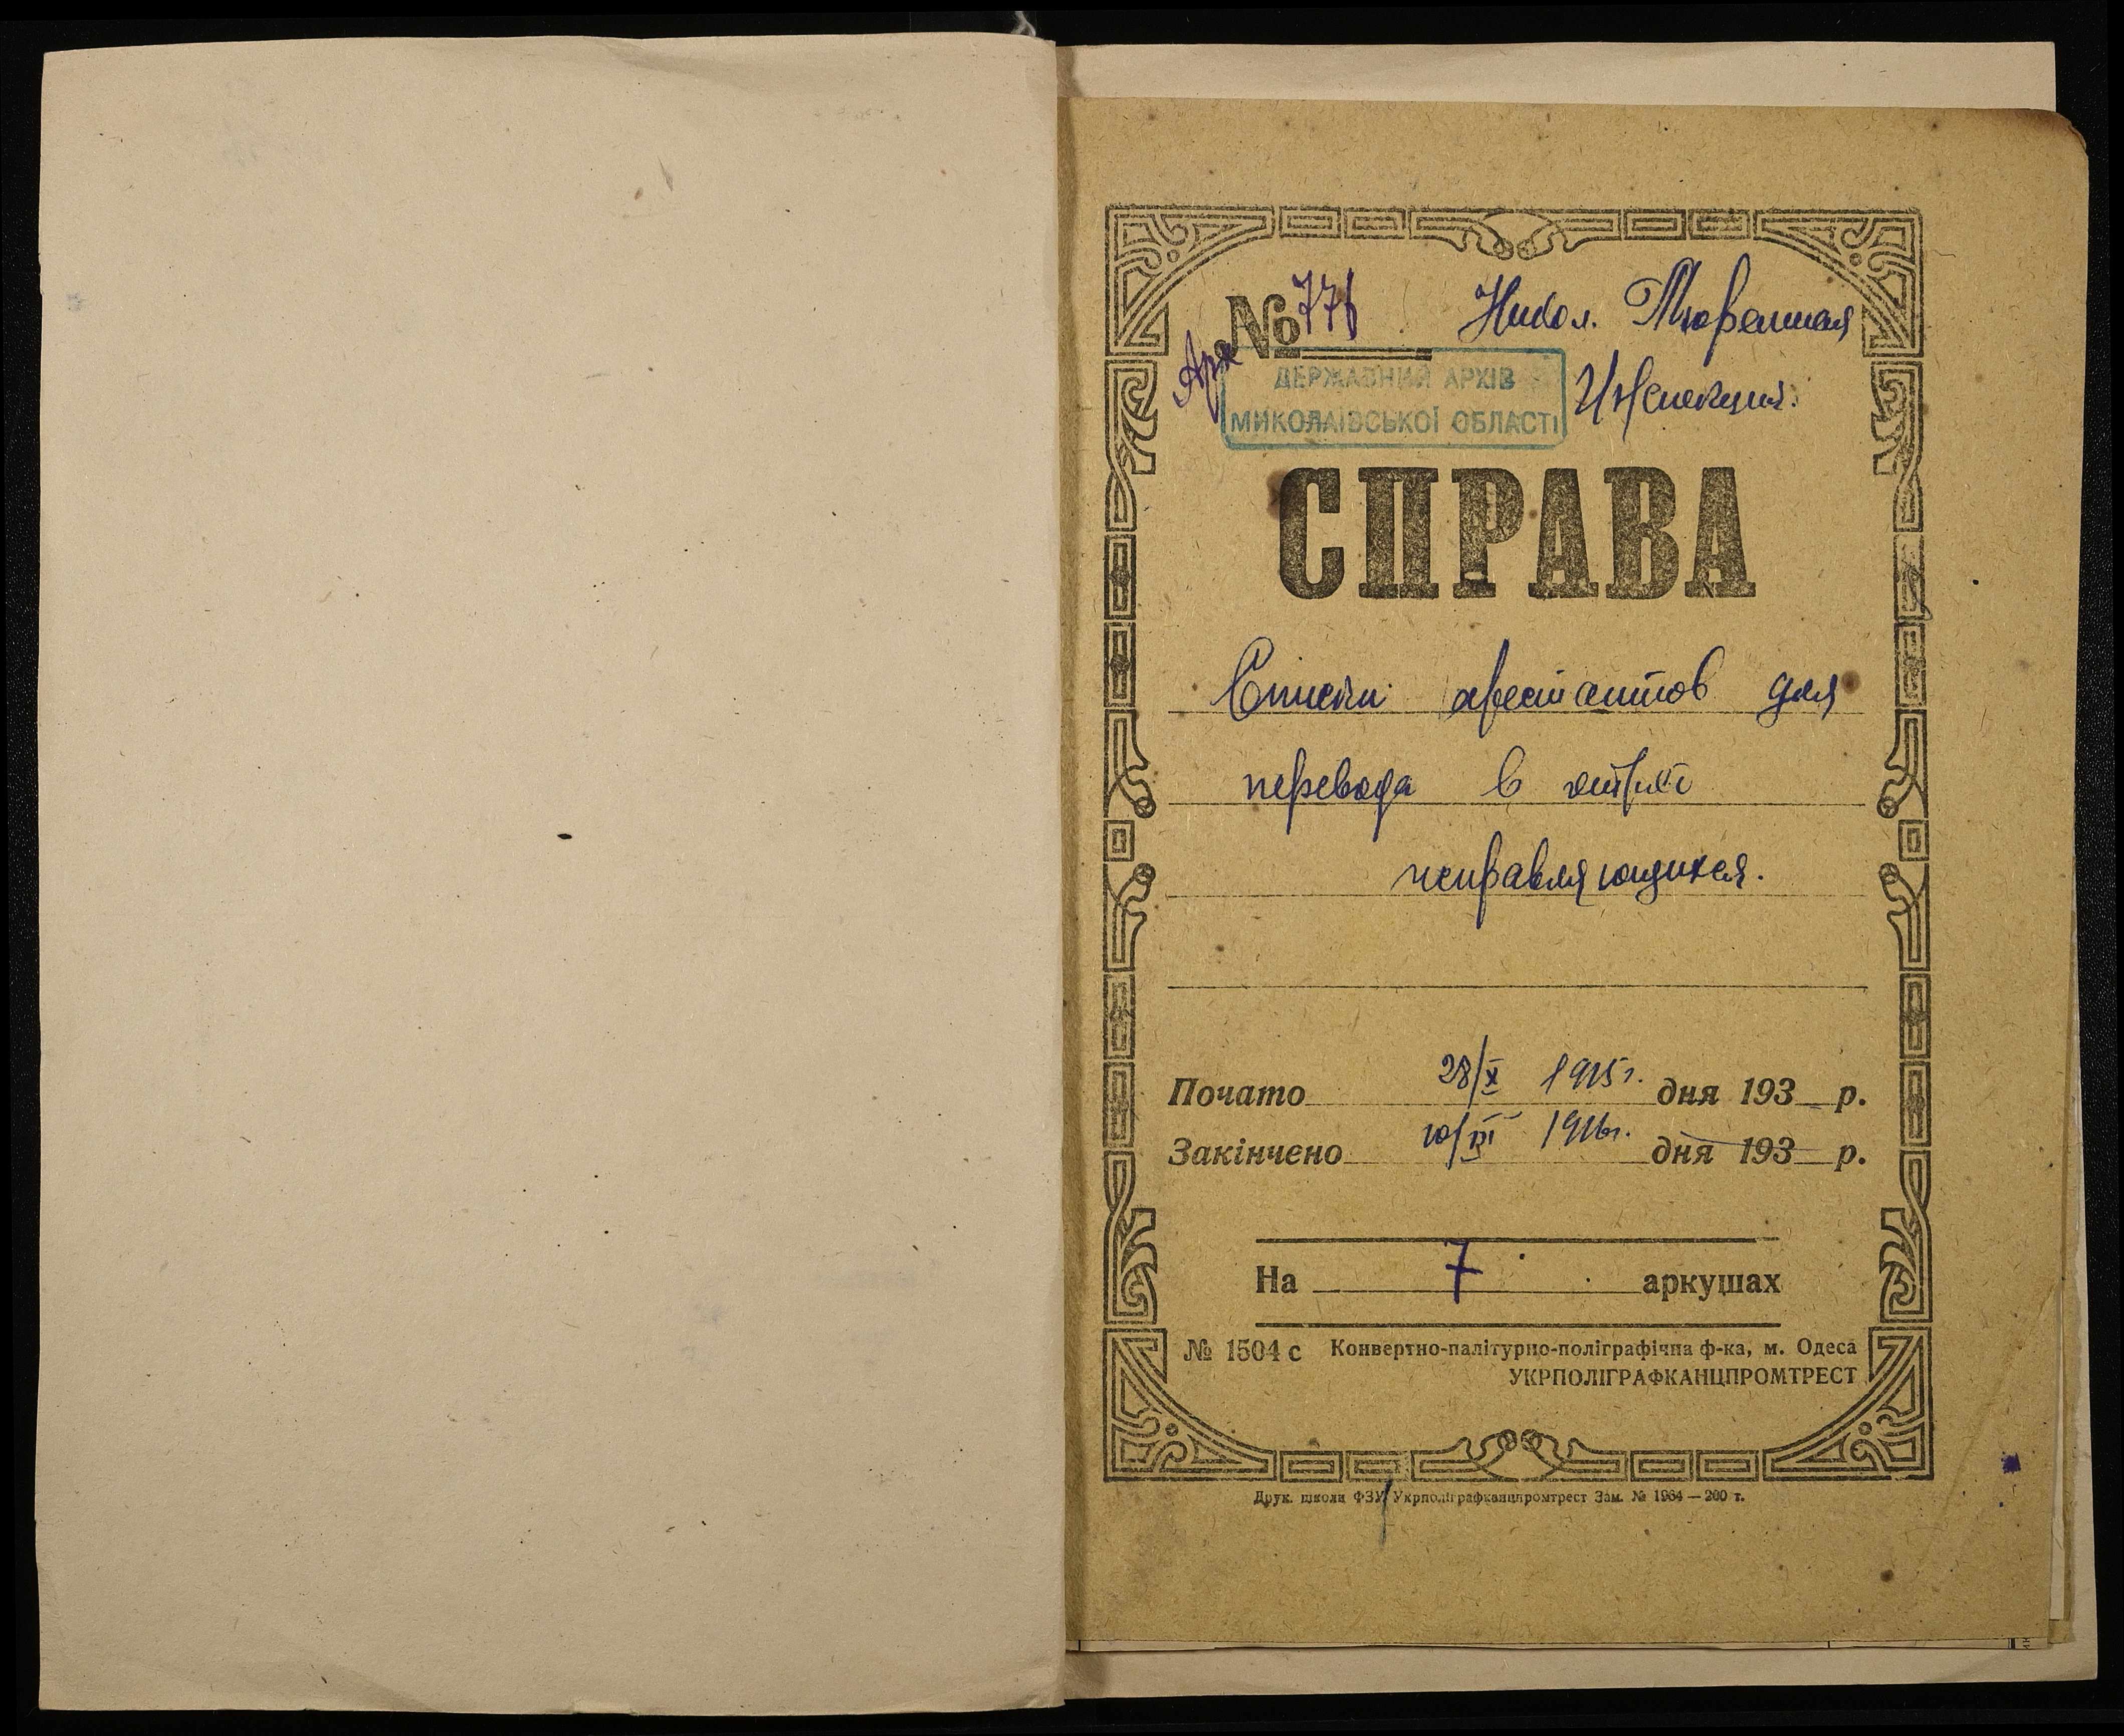 № 776 Никол. Тюремная
Арх
ДЕРЖАВНИЙ АРХІВ
МИКОЛАЇВСЬКОЇ ОБЛАСТІ
Инспекция.
СПРАВА
Списки арестантов для
перевода в
исправляющихся.
Почато 28/X 1915 г. дня 193 р.
Закінчено 10/III 1916 г. дня 193 р.
На 7 аркушах
№ 1504 с Конвертно-палітурно-поліграфічна ф-ка, м. Одеса
УКРПОЛІГРАФКАНЦПРОМТРЕСТ
Друк. школи ФЗУ Укрполіграфканцпромтрест Зам. № 1964 — 200 т.